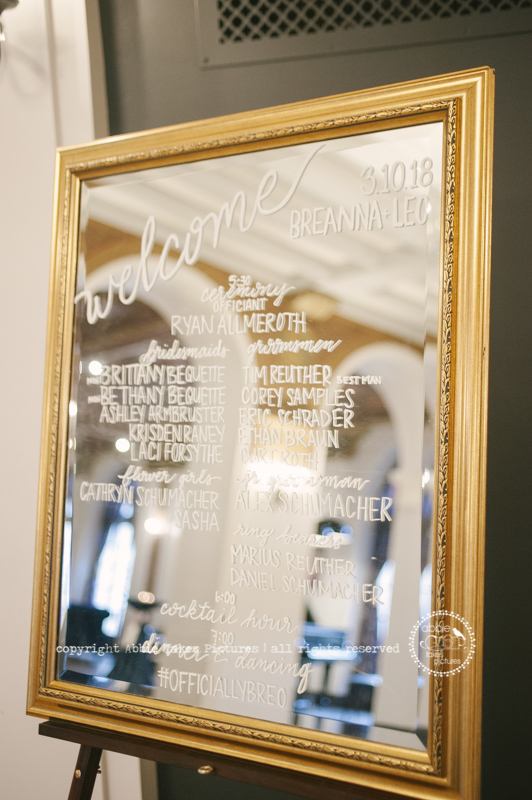 welcome
3.10.18
BREANNA + LEO
5:30
ceremony
OFFICIANT
RYAN ALLMEROTH
bridesmaids
BRITTANY BEQUETTE
BETHANY BEQUETTE
ASHLEY ARMBRUSTER
KRISDEN RANEY
LACI FORSYTHE
flower girls
CATHRYN SCHUMACHER
SASHA
groomsmen
TIM REUTHER BEST MAN
COREY SAMPLES
ERIC SCHRADER
ETHAN BRAUN
jr. groomsman
ALEX SCHUMACHER
ring bearers
MARIUS REUTHER
DANIEL SCHUMACHER
6:00
cocktail hour
7:00
dinner & dancing
#OFFICIALLYBREO
copyright Abbie Takes Pictures | all rights reserved
abbie
takes
pictures